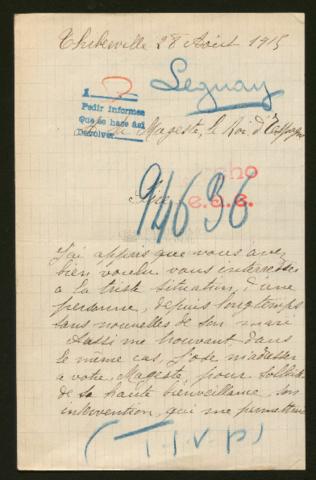 Thiberville 28 Août 1915
Leguay
1
Pedir informes
Que se hace así
Devolver
Sa Majesté, le Roi d'Espagne
Sire
94636
J'ai appris que vous avez
bien voulu vous interesser
a la triste situation, d'une
personne, depuis longtemps
sans nouvelles de son mari
Aussi me trouvant dans
le même cas, j'ose m'adresser
a votre Majesté, pour solliciter
de sa haute bienveillance, son
intervention, qui me permettrai
(T.S.V.P)